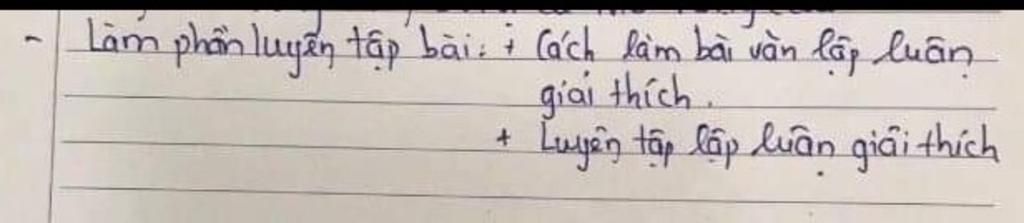 - Làm phần luyện tập bài: + Cách làm bài văn lập luận
giải thích.
+ Luyện tập lập luận giải thích